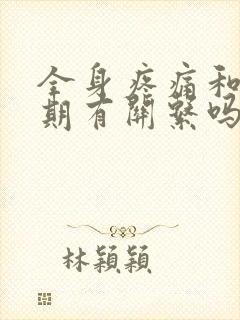 全身疼痛和
期有關繫吗
林穎穎